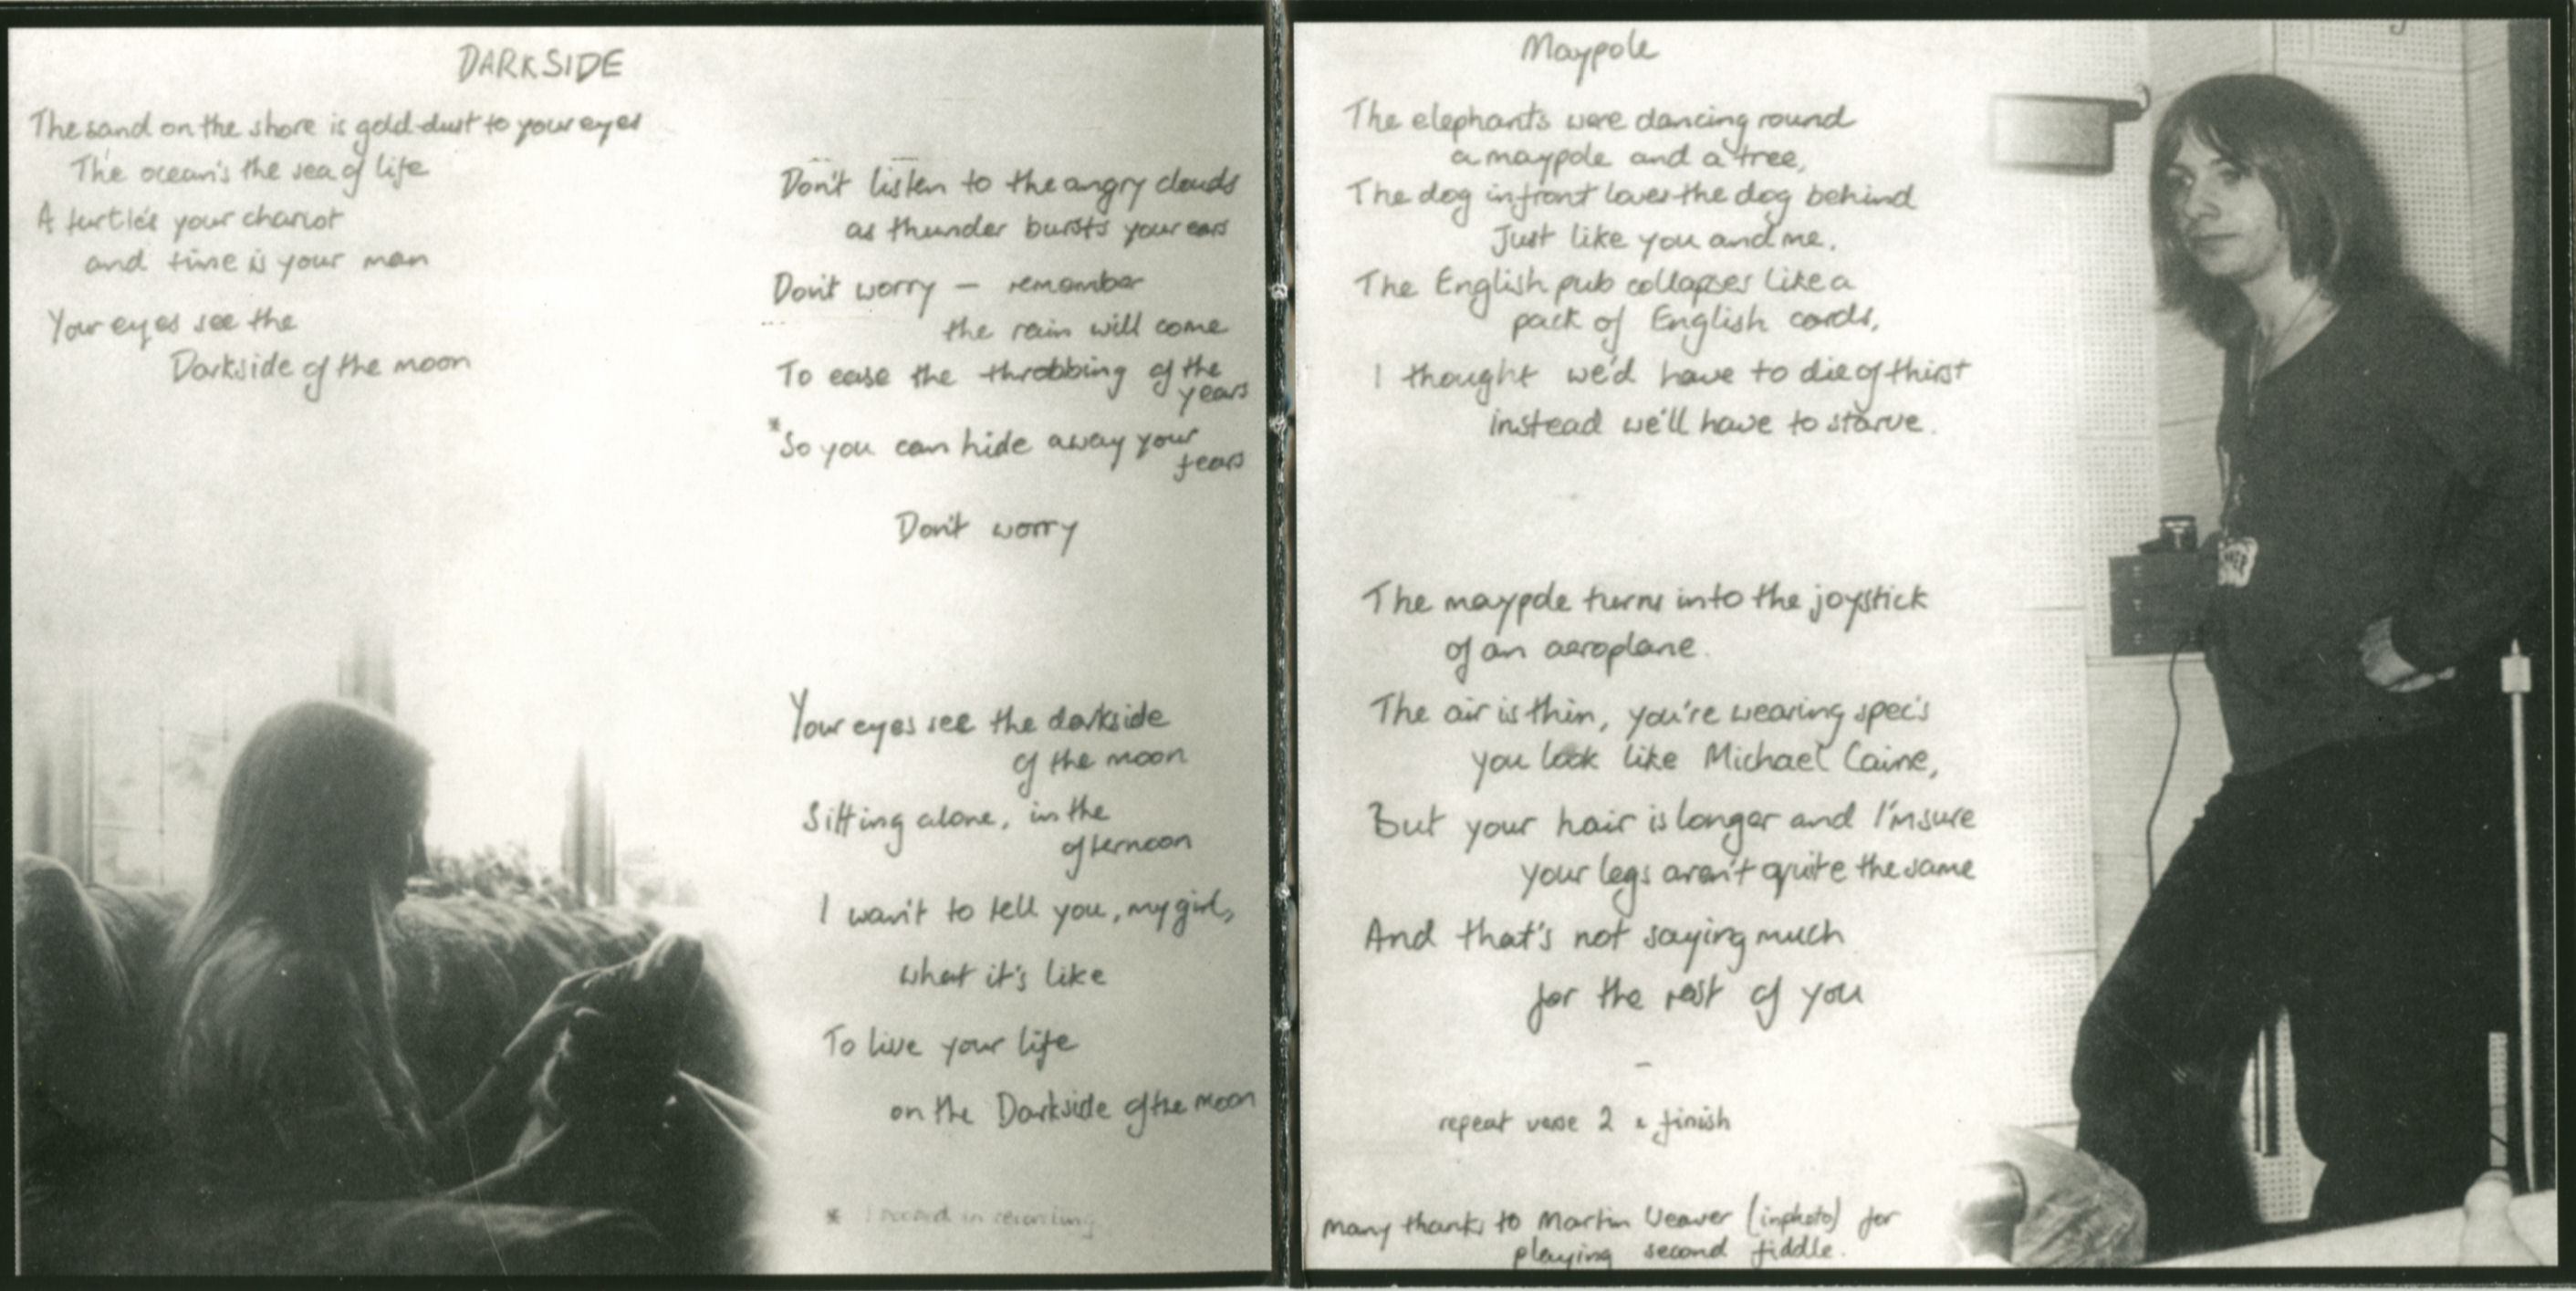 DARKSIDE
The sand on the shore is gold-dust to your eyes
The ocean's the sea of life
A turtle's your chariot
and time is your man
Your eyes see the
Darkside of the moon
Don't listen to the angry clouds
as thunder bursts your ears
Don't worry — remember
the rain will come
To ease the throbbing of the
years
*So you can hide away your
fears
Don't worry
Your eyes see the darkside
of the moon
Sitting alone, in the
afternoon
I wan't to tell you, my girl,
what it's like
To live your life
on the Darkside of the moon
* in recording
Maypole
The elephants were dancing round
a maypole and a tree,
The dog in front loves the dog behind
Just like you and me.
The English pub collapses like a
pack of English cards,
I thought we'd have to die of thirst
instead we'll have to starve.
The maypole turns into the joystick
of an aeroplane.
The air is thin, you're wearing spec's
you look like Michael Caine,
But your hair is longer and I'm sure
your legs aren't quite the same
And that's not saying much
for the rest of you
–
repeat verse 2 & finish
Many thanks to Martin Weaver (in photo) for
playing second fiddle.